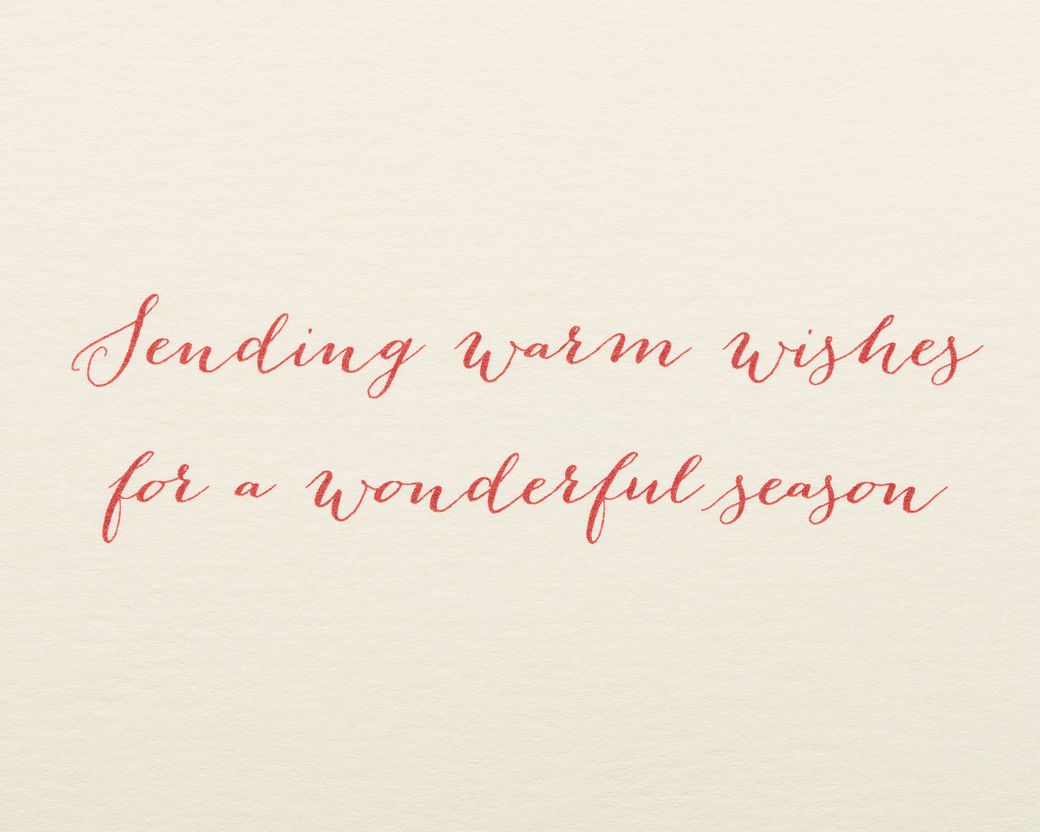 Sending warm wishes
for a wonderful season